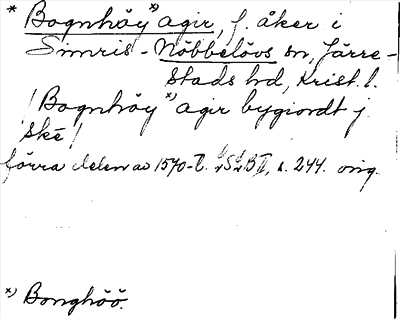 * Bognhöy *) agir, f. åker i
Simris-Nöbbelövs sn, Järre-
stads hd, Krist. l.
! Bognhöy *) agir bygiordt j
ské !
förra delen av 1570-t. B II, s. 244. orig.
*) Bonghöö.